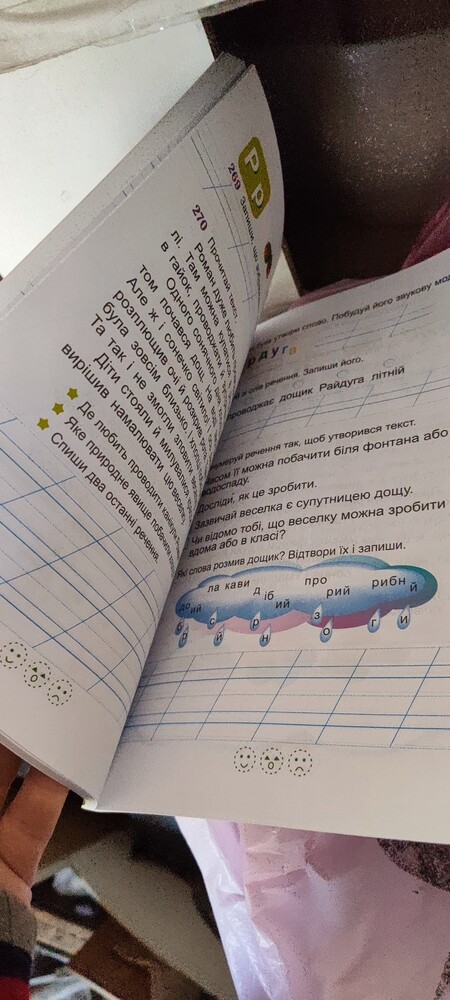 Рр
269 Запиши, що
270 Прочитай текст.
Роман дуже любить
лі. Там можна купатися
в гайок, проводжати
Одного сонячного
том почався дощ.
Але ж і сонечко світило!
розплющив очі й
була зовсім близько, і
Та так і не змогли зловити
Діти стояли й милувалися
вирішив намалювати цю весел
Де любить проводити канікули
Яке природне явище побачили
Спиши два останні речення.
утвори слово. Побудуй його звукову мод
дуга
зі слів речення. Запиши його.
проводжає дощик Райдуга літній
нумеруй речення так, щоб утворився текст.
асом її можна побачити біля фонтана або
водоспаду.
Досліди, як це зробити.
Зазвичай веселка є супутницею дощу.
Чи відомо тобі, що веселку можна зробити
вдома або в класі?
Які слова розмив дощик? Відтвори їх і запиши.
до ий ла кави д іб ий про рий рибн й
б р с й р н з о г и